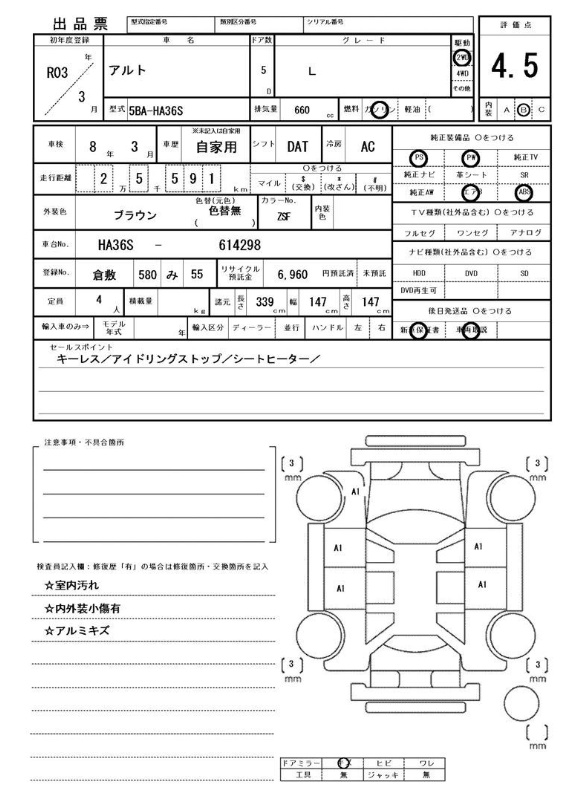 出品票 型式指定番号 類別区分番号 シリアル番号 評価点
初年度登録 車名 ドア数 グレード 駆動
R03 年 3 月 アルト 5 D L 2WD 4WD その他 4.5
型式 5BA-HA36S 排気量 660 cc 燃料 ガソリン 軽油 ( ) 内装 A B C
車検 8 年 3 月 車歴 ※未記入は自家用 自家用 シフト DAT 冷房 AC
純正装備品 〇をつける
PS PW 純正TV
走行距離 2 万 5 千 5 9 1 km 〇をつける マイル $ (交換) * (改ざん) # (不明)
純正ナビ 革シート SR
純正AW エアB ABS
外装色 ブラウン 色替(元色) 色替無 ( ) カラーNo. ZSF 内装色
TV種類(社外品含む)〇をつける
フルセグ ワンセグ アナログ
車台No. HA36S - 614298
ナビ種類(社外品含む)〇をつける
登録No. 倉敷 580 み 55 リサイクル預託金 6,960 円預託済 未預託
HDD DVD SD
DVD再生可
定員 4 人 積載量 kg 諸元 長さ 339 cm 幅 147 cm 高さ 147 cm
後日発送品 〇をつける
輸入車のみ⇒ モデル年式 年 輸入区分 ディーラー 並行 ハンドル 左 右
新車保証書 車両取説
セールスポイント
キーレス/アイドリングストップ/シートヒーター/
注意事項・不具合箇所
検査員記入欄:修復歴「有」の場合は修復箇所・交換箇所を記入
☆室内汚れ
☆内外装小傷有
☆アルミキズ
[ 3 ] mm [ 3 ] mm
A1
A1 A1
A1 A1
[ 3 ] mm [ 3 ] mm
[ ] mm
ドアミラー キズ ヒビ ワレ
工具 無 ジャッキ 無